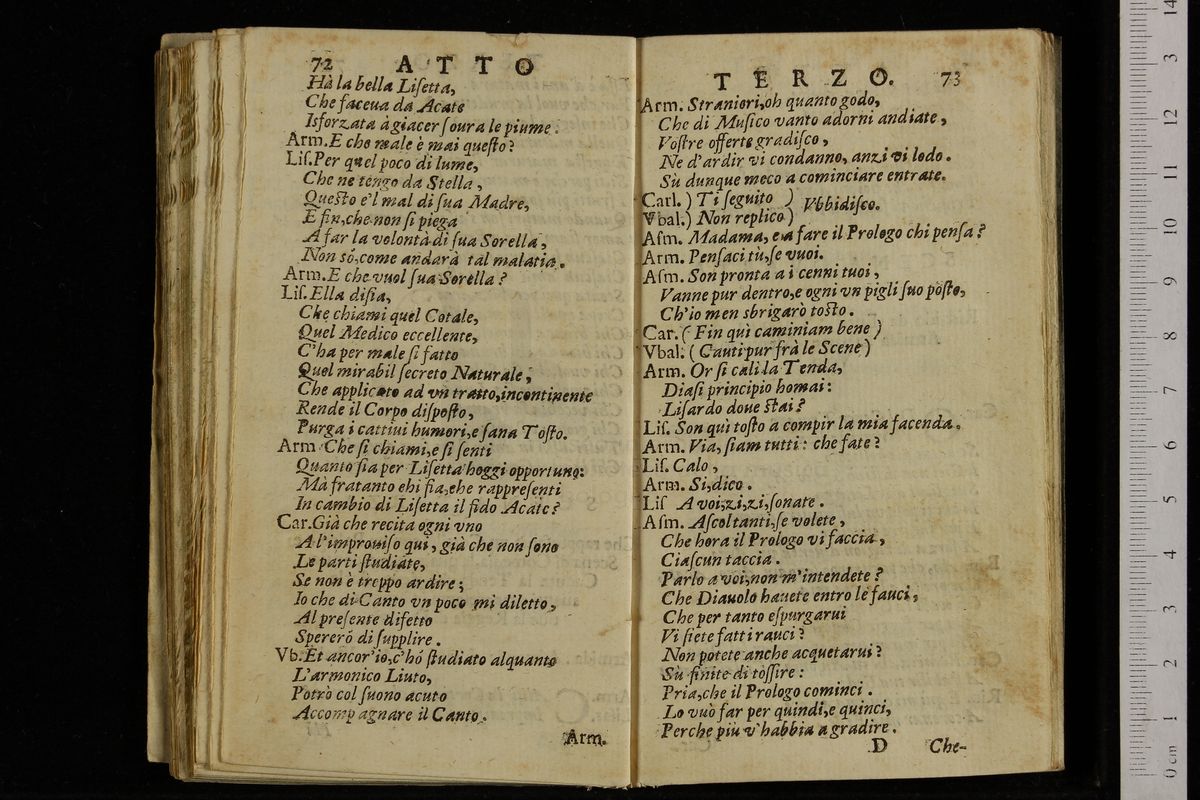 72 ATTO
Hà la bella Liſetta,
Che faceua da Acate
Isforzata à giacer ſoura le piume.
Arm. E che male è mai queſto?
Liſ. Per quel poco di lume,
Che ne tengo da Stella,
Queſto e'l mal di ſua Madre,
E fin, che non ſi piega
A far la volontà di ſua Sorella,
Non só, come andarà tal malatia.
Arm. E che vuol ſua Sorella?
Liſ. Ella diſia,
Che chiami quel Cotale,
Quel Medico eccellente,
C'ha per male ſi fatto
Quel mirabil ſecreto Naturale,
Che applicato ad vn tratto, incontinente
Rende il Corpo diſpoſto,
Purga i cattiui humori, e ſana Toſto.
Arm Che ſi chiami, e ſi ſenti
Quanto ſia per Liſetta hoggi opportuno:
Mà fratanto chi fia, che rappreſenti
In cambio di Liſetta il fido Acate?
Car. Già che recita ogni vno
A l'improuiſo qui, già che non ſono
Le parti ſtudiate,
Se non è troppo ardire;
Io che di Canto vn poco mi diletto,
Al preſente difetto
Spererò di ſupplire.
Vb. Et ancor'io, c'hó ſtudiato alquanto
L'armonico Liuto,
Potrò col ſuono acuto
Accompagnare il Canto.
Arm.
TERZO. 73
Arm. Stranieri, oh quanto godo,
Che di Muſico vanto adorni andiate,
Voſtre offerte gradiſco,
Ne d'ardir vi condanno, anzi vi lodo.
Sù dunque meco a cominciare entrate.
Carl. ) Ti ſeguito ) Vbbidiſco.
Vbal. ) Non replico )
Aſm. Madama, e a fare il Prologo chi penſa?
Arm. Penſaci tù, ſe vuoi.
Aſm. Son pronta a i cenni tuoi,
Vanne pur dentro, e ogni vn pigli ſuo poſto,
Ch'io men sbrigarò toſto.
Car. (Fin quì caminiam bene)
Vbal. (Cauti pur frà le Scene)
Arm. Or ſi cali la Tenda,
Diaſi principio homai:
Liſardo doue ſtai?
Liſ. Son qui toſto a compir la mia facenda.
Arm. Via, ſiam tutti: che fate?
Liſ. Calo,
Arm. Si, dico.
Liſ A voi, zi, zi, ſonate.
Aſm. Aſcoltanti, ſe volete,
Che hora il Prologo vi faccia,
Ciaſcun taccia.
Parlo a voi, non m'intendete?
Che Diauolo hauete entro le fauci,
Che per tanto eſpurgarui
Vi ſiete fatti rauci?
Non potete anche acquetarui?
Sù finite di toſſire:
Pria, che il Prologo cominci.
Lo vuò far per quindi, e quinci,
Perche più v'habbia a gradire.
D Che-